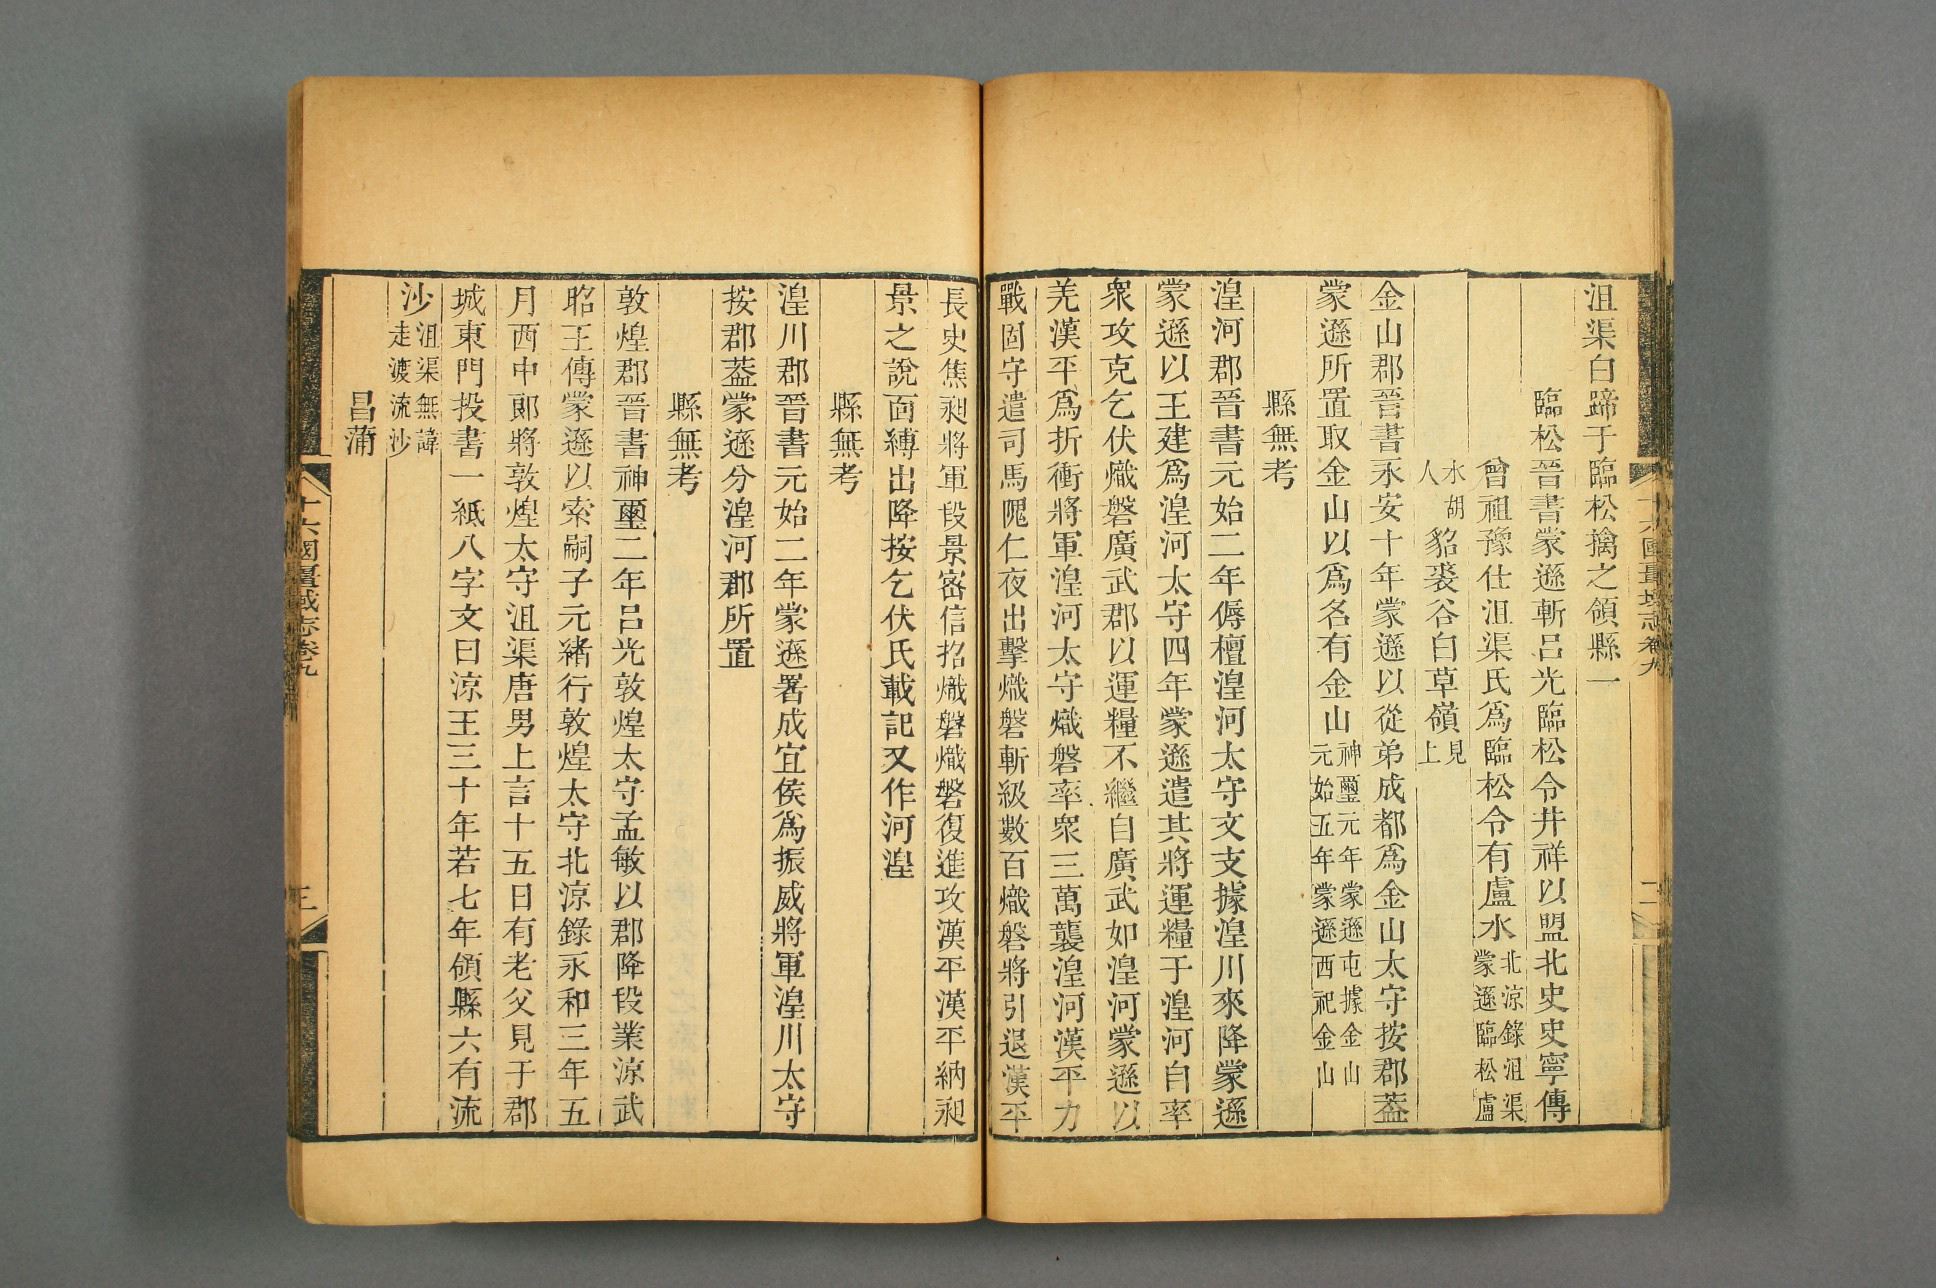 沮渠白蹄于臨松擒之領縣一
臨松晉書蒙遜斬呂光臨松令井祥以盟北史史寧傳
曾祖豫仕沮渠氏爲臨松令有盧水北涼錄沮渠蒙遜臨松盧
水胡人貂裘谷白草嶺見上
金山郡晉書永安十年蒙遜以從弟成都爲金山太守按郡葢
蒙遜所置取金山以爲名有金山神璽元年蒙遜屯據金山元始五年蒙遜西祀金山
縣無考
湟河郡晉書元始二年傉檀湟河太守文支據湟川來降蒙遜
蒙遜以王建爲湟河太守四年蒙遜遣其將運糧于湟河自率
衆攻克乞伏熾磐廣武郡以運糧不繼自廣武如湟河蒙遜以
羌漢平爲折衝將軍湟河太守熾磐率衆三萬襲湟河漢平力
戰固守遣司馬隗仁夜出擊熾磐斬級數百熾磐將引退漢平
長史焦昶將軍段景密信招熾磐熾磐復進攻漢平漢平納昶
景之說面縛出降按乞伏氏載記又作河湟
縣無考
湟川郡晉書元始二年蒙遜署成宜侯爲振威將軍湟川太守
按郡葢蒙遜分湟河郡所置
縣無考
敦煌郡晉書神璽二年呂光敦煌太守孟敏以郡降段業涼武
昭王傳蒙遜以索嗣子元緒行敦煌太守北涼錄永和三年五
月西中郎將敦煌太守沮渠唐男上言十五日有老父見于郡
城東門投書一紙八字文曰涼王三十年若七年領縣六有流
沙沮渠無諱走渡流沙
昌蒲
十六國疆域志卷九
三
十六國疆域志卷九
二